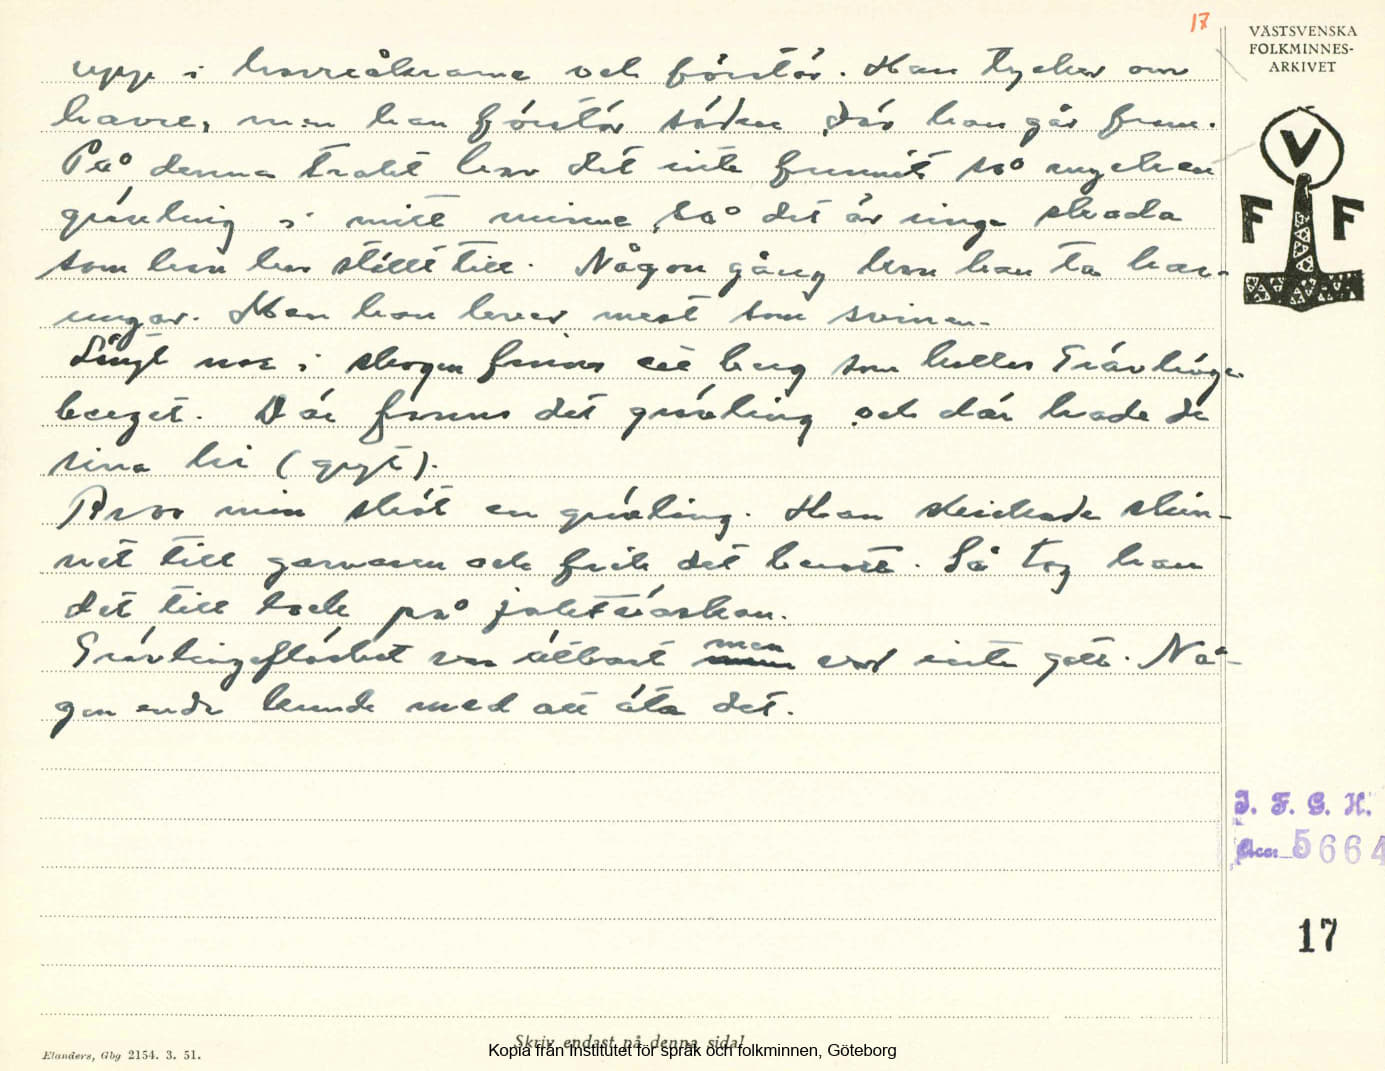 17
VÄSTSVENSKA
FOLKMINNES-
ARKIVET
V
F F
upp i havreåkrarna och förstör. Han tycker om
havre, men han förstör säden där han går fram.
På denna trakt har det inte funnits så mycken
grävling i mitt minne, så det är inga skada
som han har ställt till. Någon gång kan han ta har-
ungar. Men han lever mest som svinen.
Långt norr i skogen finns ett berg som kallas Grävlinga
berget. Där fanns det grävling och där hade de
sina hi (gryt).
Per min sköt en grävling. Han skickade skin-
net till garvaren och fick det berett. Så tog han
det till lock på jaktväskan.
Grävlingefläsket var ätbart men var inte gott. Nå-
gon enda kunde med att äta det.
I. F. G. H.
Acc: 5664
17
Skriv endast på denna sida!
Kopia från Institutet för språk och folkminnen, Göteborg
Elanders, Gbg 2154. 3. 51.